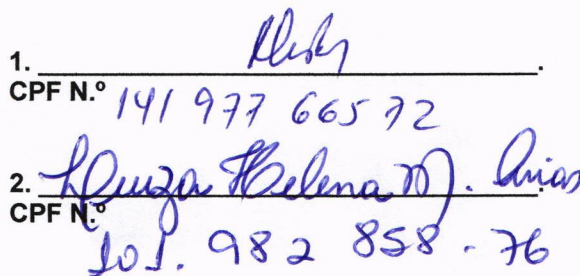 1.
CPF N.º 141 977 665 72
2. Luiza Helena M. Arias
CPF N.º
101. 982 858 - 76